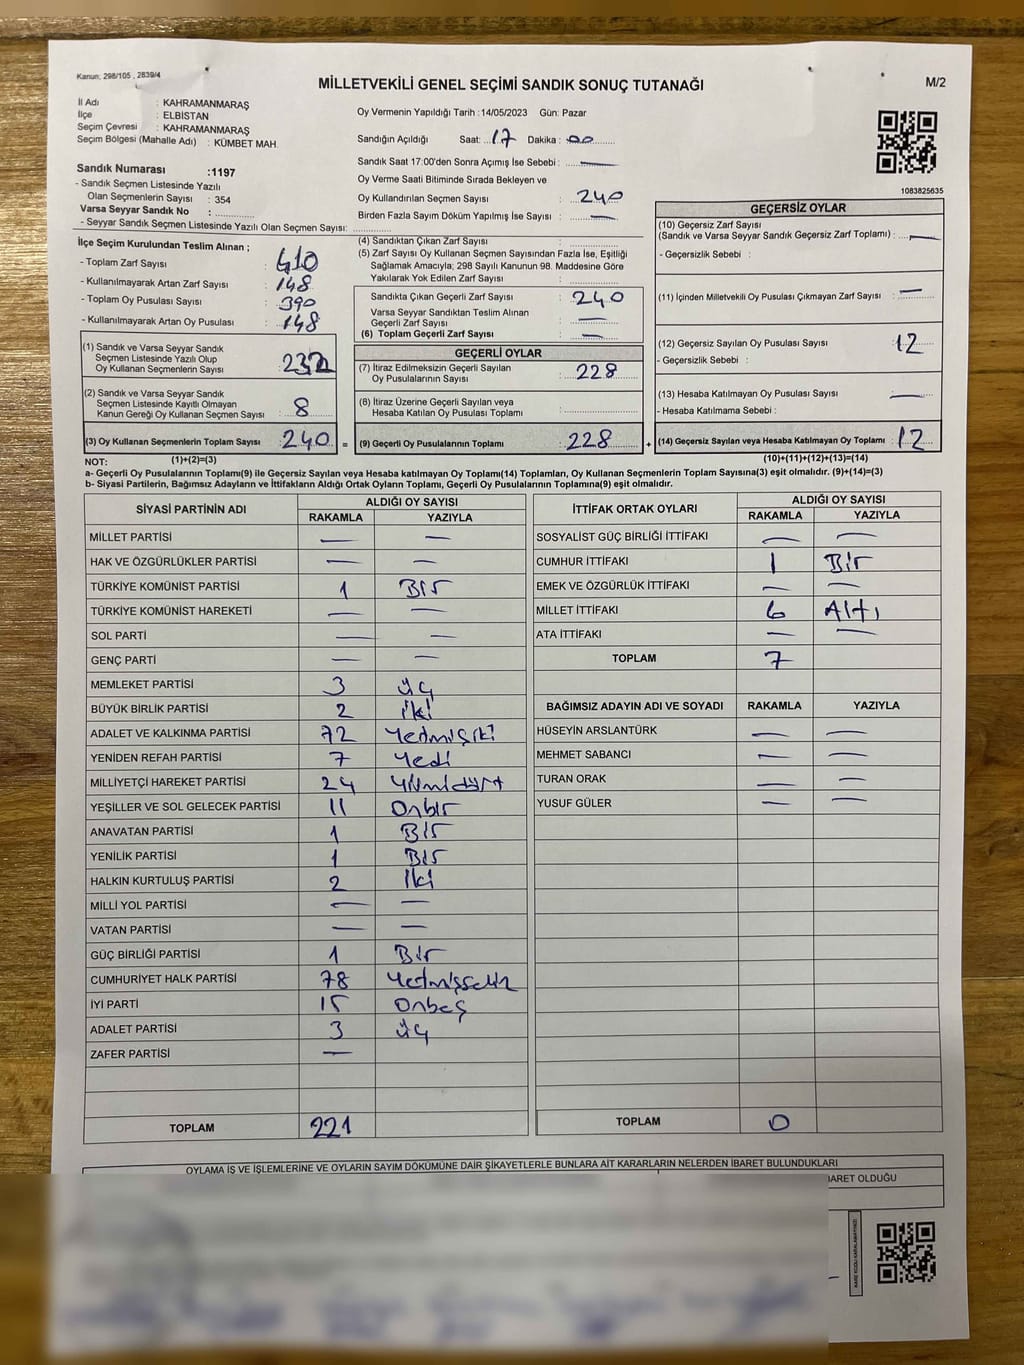 Kanun; 298/105 , 2839/4
MİLLETVEKİLİ GENEL SEÇİMİ SANDIK SONUÇ TUTANAĞI
M/2
İl Adı : KAHRAMANMARAŞ
İlçe : ELBİSTAN
Seçim Çevresi : KAHRAMANMARAŞ
Seçim Bölgesi (Mahalle Adı) : KÜMBET MAH.
Sandık Numarası :1197
- Sandık Seçmen Listesinde Yazılı
Olan Seçmenlerin Sayısı : 354
Varsa Seyyar Sandık No :
- Seyyar Sandık Seçmen Listesinde Yazılı Olan Seçmen Sayısı:
Oy Vermenin Yapıldığı Tarih :14/05/2023 Gün: Pazar
Sandığın Açıldığı Saat: 17 Dakika : 00
Sandık Saat 17:00'den Sonra Açımış İse Sebebi : —
Oy Verme Saati Bitiminde Sırada Bekleyen ve
Oy Kullandırılan Seçmen Sayısı : 240
Birden Fazla Sayım Döküm Yapılmış İse Sayısı : —
1083825635
İlçe Seçim Kurulundan Teslim Alınan ;
- Toplam Zarf Sayısı : 410
- Kullanılmayarak Artan Zarf Sayısı : 148
- Toplam Oy Pusulası Sayısı : 390
- Kullanılmayarak Artan Oy Pusulası : 148
(1) Sandık ve Varsa Seyyar Sandık
Seçmen Listesinde Yazılı Olup
Oy Kullanan Seçmenlerin Sayısı : 232
(2) Sandık ve Varsa Seyyar Sandık
Seçmen Listesinde Kayıtlı Olmayan
Kanun Gereği Oy Kullanan Seçmen Sayısı : 8
(3) Oy Kullanan Seçmenlerin Toplam Sayısı : 240 =
(1)+(2)=(3)
(4) Sandıktan Çıkan Zarf Sayısı :
(5) Zarf Sayısı Oy Kullanan Seçmen Sayısından Fazla İse, Eşitliği
Sağlamak Amacıyla; 298 Sayılı Kanunun 98. Maddesine Göre
Yakılarak Yok Edilen Zarf Sayısı :
Sandıkta Çıkan Geçerli Zarf Sayısı : 240
Varsa Seyyar Sandıktan Teslim Alınan
Geçerli Zarf Sayısı : —
(6) Toplam Geçerli Zarf Sayısı : —
GEÇERLİ OYLAR
(7) İtiraz Edilmeksizin Geçerli Sayılan
Oy Pusulalarının Sayısı : 228
(8) İtiraz Üzerine Geçerli Sayılan veya
Hesaba Katılan Oy Pusulası Toplamı :
(9) Geçerli Oy Pusulalarının Toplamı : 228 +
GEÇERSİZ OYLAR
(10) Geçersiz Zarf Sayısı
(Sandık ve Varsa Seyyar Sandık Geçersiz Zarf Toplamı) : —
- Geçersizlik Sebebi :
(11) İçinden Milletvekili Oy Pusulası Çıkmayan Zarf Sayısı : —
(12) Geçersiz Sayılan Oy Pusulası Sayısı : 12
- Geçersizlik Sebebi :
(13) Hesaba Katılmayan Oy Pusulası Sayısı : —
- Hesaba Katılmama Sebebi :
(14) Geçersiz Sayılan veya Hesaba Katılmayan Oy Toplamı : 12
(10)+(11)+(12)+(13)=(14)
NOT:
a- Geçerli Oy Pusulalarının Toplamı(9) ile Geçersiz Sayılan veya Hesaba katılmayan Oy Toplamı(14) Toplamları, Oy Kullanan Seçmenlerin Toplam Sayısına(3) eşit olmalıdır. (9)+(14)=(3)
b- Siyasi Partilerin, Bağımsız Adayların ve İttifakların Aldığı Ortak Oyların Toplamı, Geçerli Oy Pusulalarının Toplamına(9) eşit olmalıdır.
SİYASİ PARTİNİN ADI ALDIĞI OY SAYISI
RAKAMLA YAZIYLA
MİLLET PARTİSİ — —
HAK VE ÖZGÜRLÜKLER PARTİSİ — —
TÜRKİYE KOMÜNİST PARTİSİ 1 Bir
TÜRKİYE KOMÜNİST HAREKETİ — —
SOL PARTİ — —
GENÇ PARTİ — —
MEMLEKET PARTİSİ 3 üç
BÜYÜK BİRLİK PARTİSİ 2 iki
ADALET VE KALKINMA PARTİSİ 72 Yetmişiki
YENİDEN REFAH PARTİSİ 7 Yedi
MİLLİYETÇİ HAREKET PARTİSİ 24 Yirmidört
YEŞİLLER VE SOL GELECEK PARTİSİ 11 Onbir
ANAVATAN PARTİSİ 1 Bir
YENİLİK PARTİSİ 1 Bir
HALKIN KURTULUŞ PARTİSİ 2 İki
MİLLİ YOL PARTİSİ — —
VATAN PARTİSİ — —
GÜÇ BİRLİĞİ PARTİSİ 1 Bir
CUMHURİYET HALK PARTİSİ 78 Yetmişsekiz
İYİ PARTİ 15 Onbeş
ADALET PARTİSİ 3 üç
ZAFER PARTİSİ —
TOPLAM 221
İTTİFAK ORTAK OYLARI ALDIĞI OY SAYISI
RAKAMLA YAZIYLA
SOSYALİST GÜÇ BİRLİĞİ İTTİFAKI — —
CUMHUR İTTİFAKI 1 Bir
EMEK VE ÖZGÜRLÜK İTTİFAKI — —
MİLLET İTTİFAKI 6 Altı
ATA İTTİFAKI — —
TOPLAM 7
BAĞIMSIZ ADAYIN ADI VE SOYADI RAKAMLA YAZIYLA
HÜSEYİN ARSLANTÜRK — —
MEHMET SABANCI — —
TURAN ORAK — —
YUSUF GÜLER — —
TOPLAM 0
OYLAMA İŞ VE İŞLEMLERİNE VE OYLARIN SAYIM DÖKÜMÜNE DAİR ŞİKAYETLERLE BUNLARA AİT KARARLARIN NELERDEN İBARET BULUNDUKLARI
BARET OLDUĞU